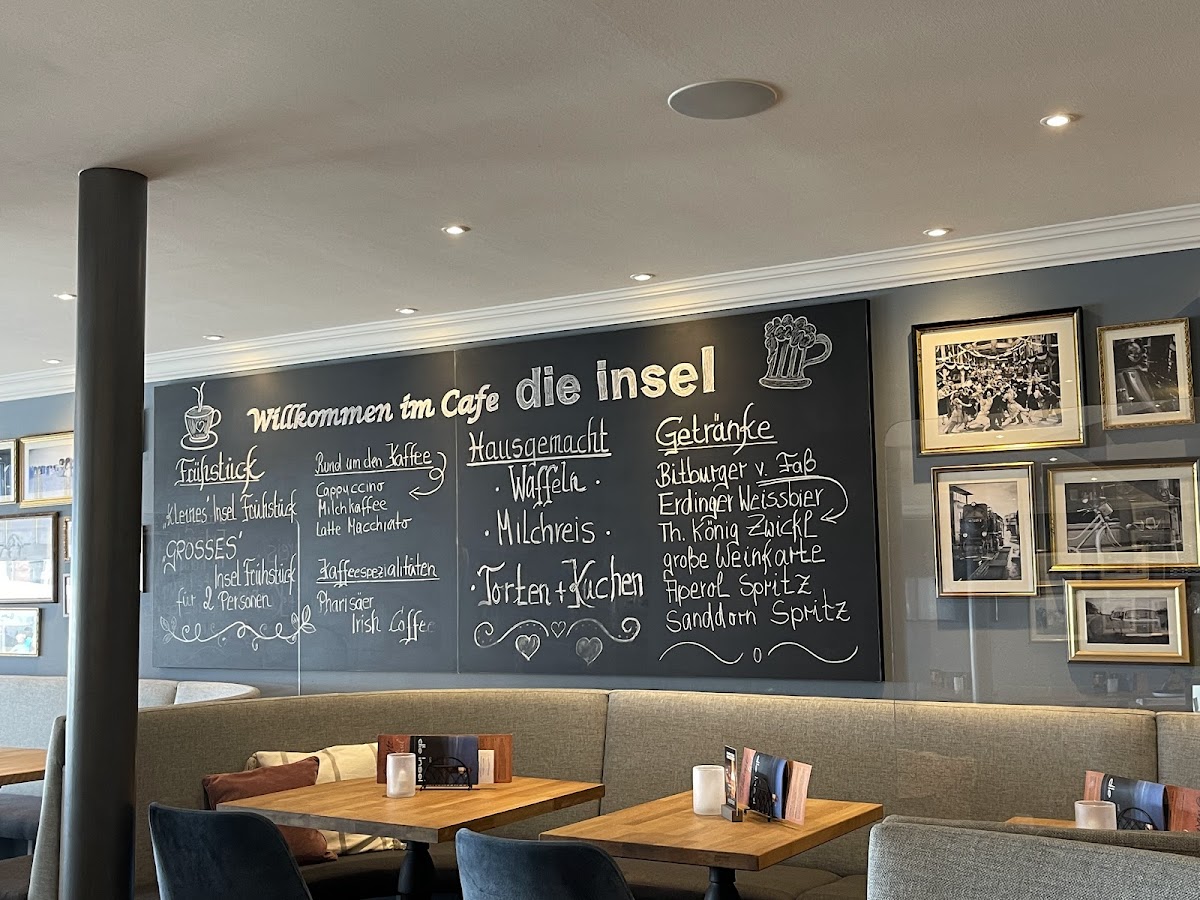 Willkommen im Cafe die insel
Frühstück
„kleines' Insel Frühstück
„GROSSES'
Insel Frühstück
für 2 Personen
Rund um den Kaffee
Cappuccino
Milchkaffee
Latte Macchiato
Kaffeespezialitäten
Pharisäer
Irish Coffee
Hausgemacht
· Waffeln ·
· Milchreis ·
· Torten + Kuchen
Getränke
Bitburger v. Faß
Erdinger Weissbier
Th. König Zwickl
große Weinkarte
Aperol Spritz
Sanddorn Spritz
die insel
die